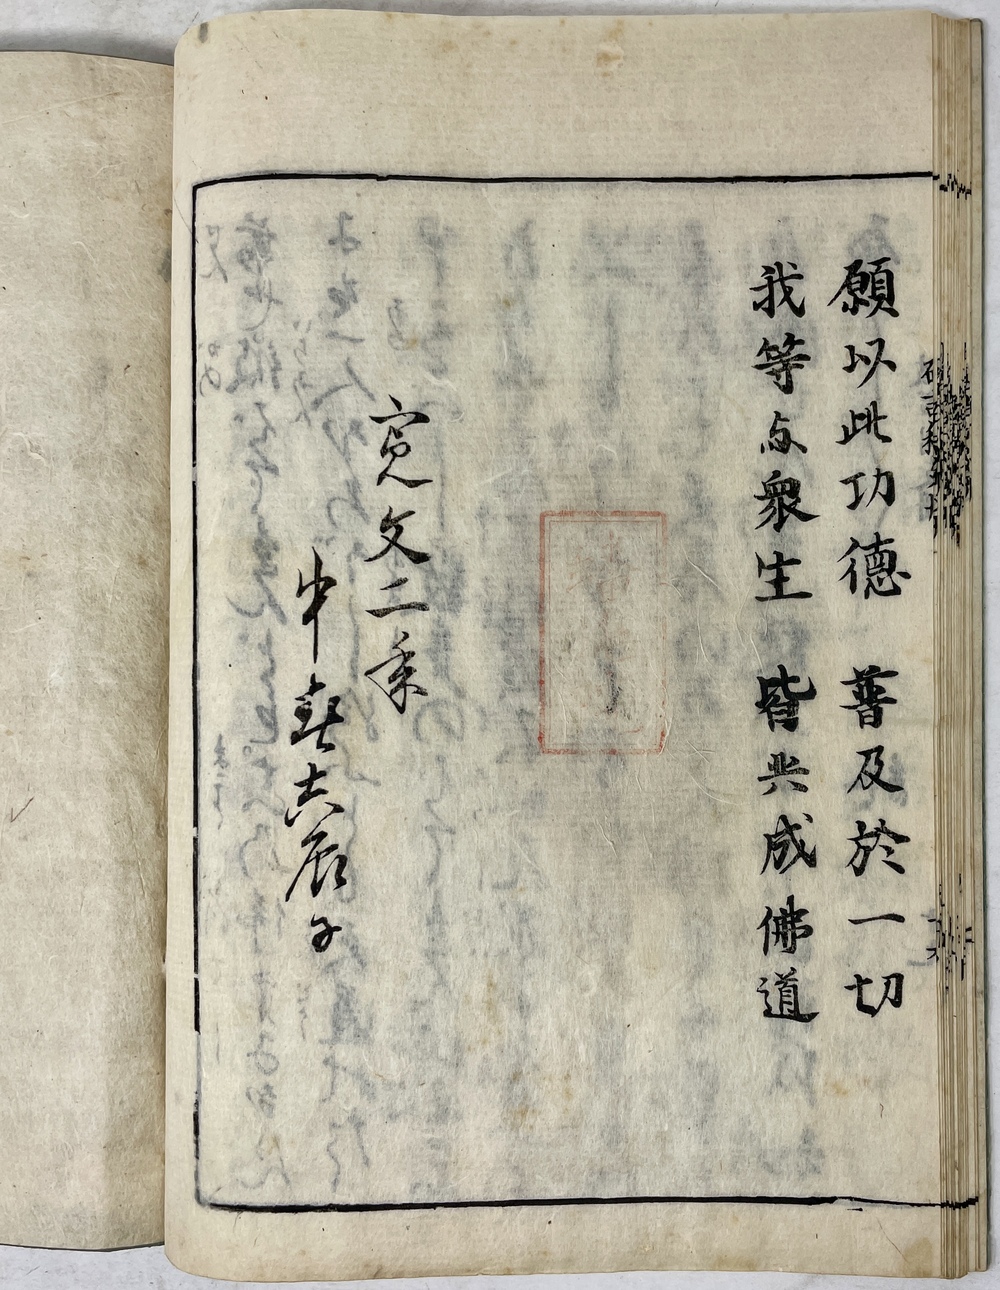 願以此功德 普及於一切
我等与衆生 皆共成佛道
寛文二年
中春吉辰